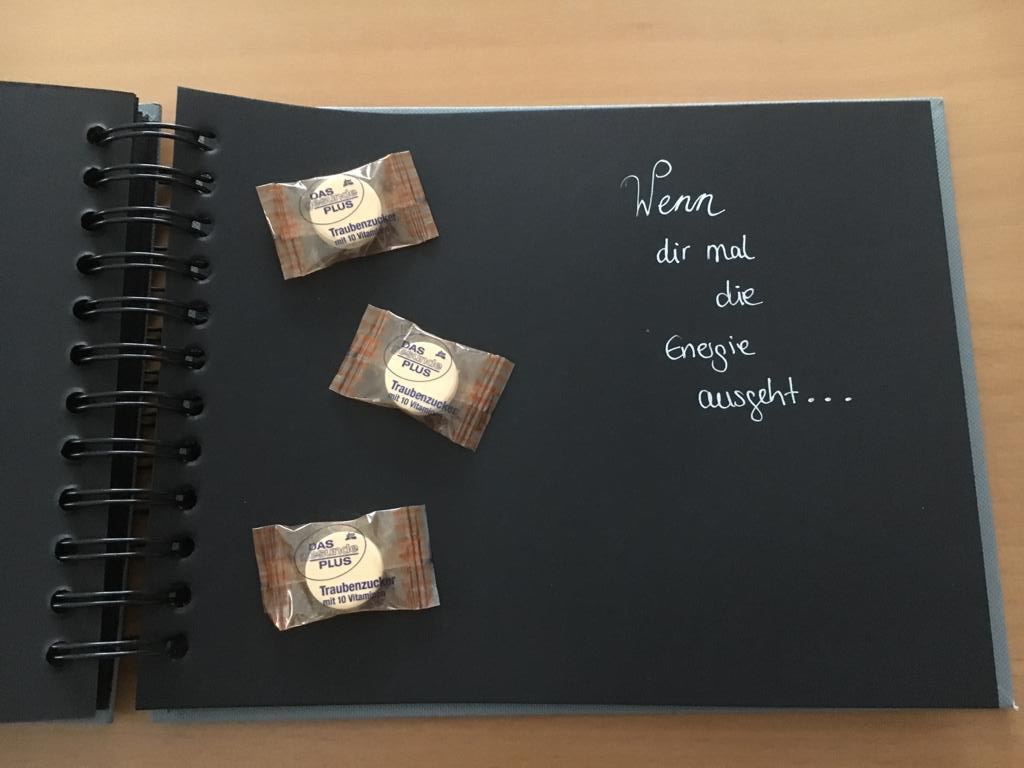 DAS
gesunde
PLUS
Traubenzucker
mit 10 Vitaminen
DAS
gesunde
PLUS
Traubenzucker
mit 10 Vitaminen
DAS
gesunde
PLUS
Traubenzucker
mit 10 Vitaminen
Wenn
dir mal
die
Energie
ausgeht...